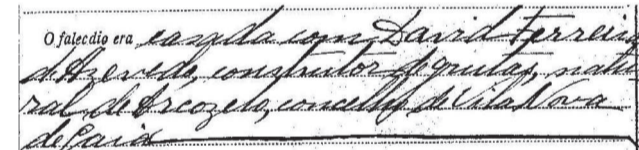 O falecdio era casada com David Ferreira
d'Azevedo, construtor de grutas, natu
ral de Arcozelo, concelho de Vila Nova
de Gaia